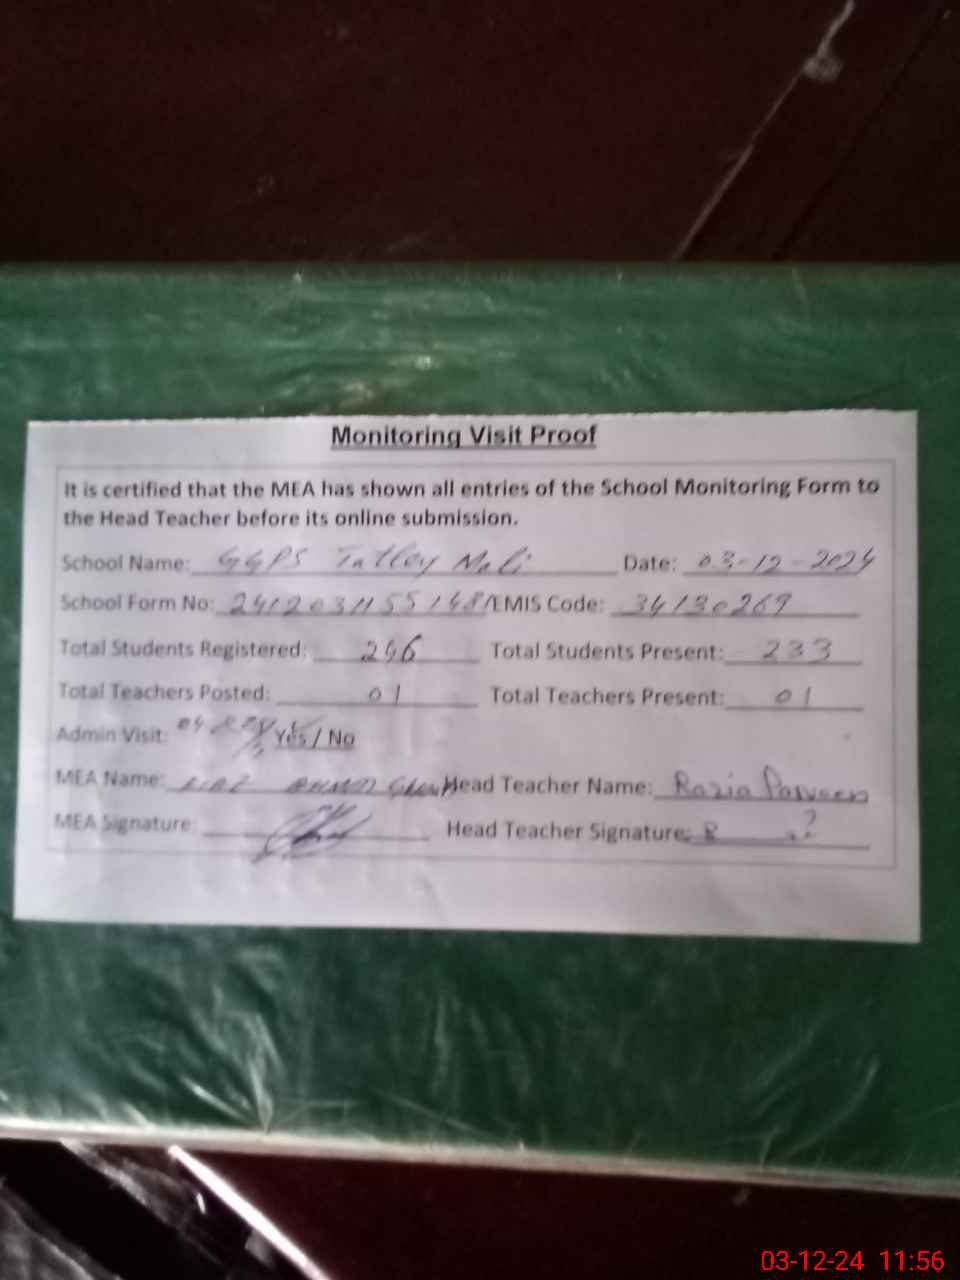 Monitoring Visit Proof
It is certified that the MEA has shown all entries of the School Monitoring Form to
the Head Teacher before its online submission.
School Name: GGPS Tatley Mali Date: 03-12-2024
School Form No: 2412031155148 /EMIS Code: 34130269
Total Students Registered: 246 Total Students Present: 233
Total Teachers Posted: 01 Total Teachers Present: 01
Admin Visit: Yes / No
MEA Name: Head Teacher Name: Razia Parveen
MEA Signature: Head Teacher Signature:
03-12-24 11:56